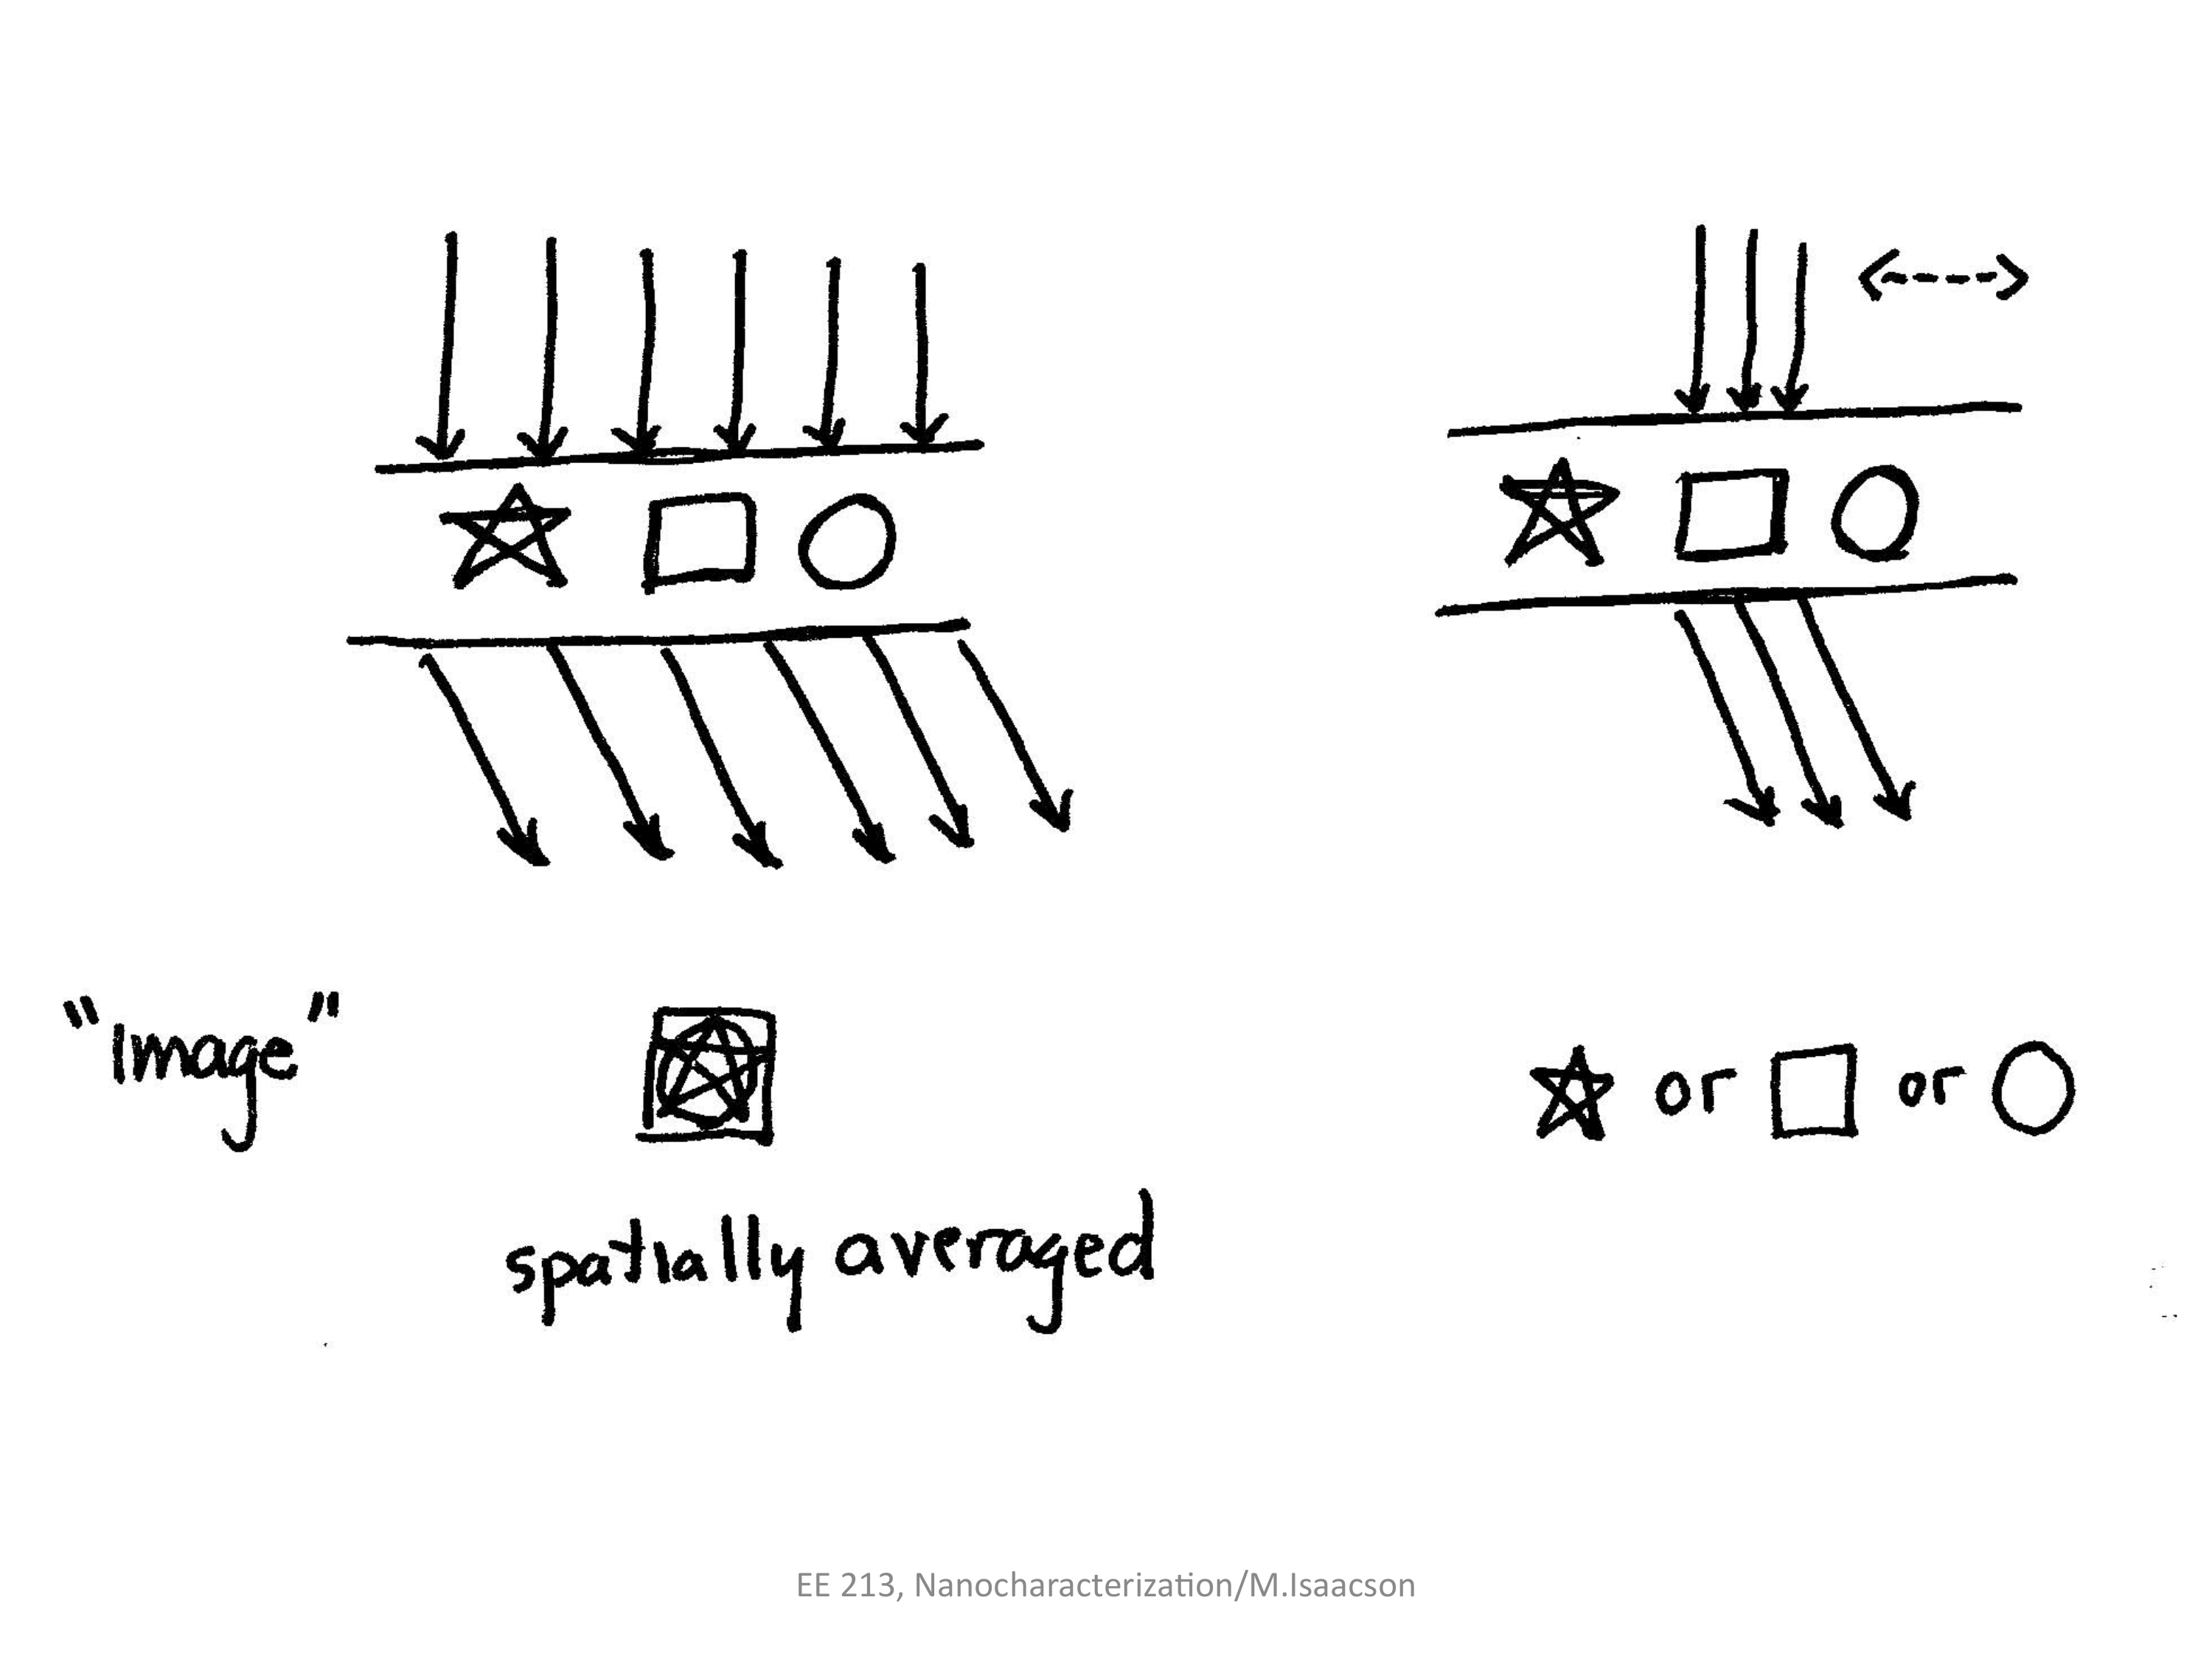 "Image"
or or
spatially averaged
EE 213, Nanocharacterization/M.Isaacson